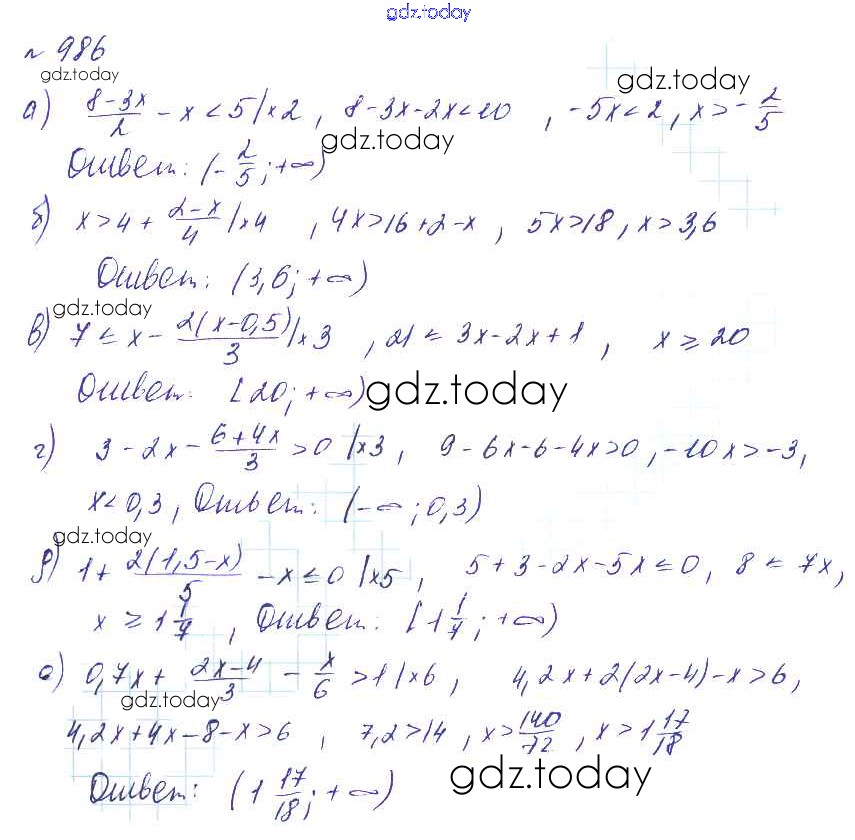 gdz.today
№ 986
gdz.today
gdz.today
а) (8-3x)/2 - x < 5 |×2, 8-3x-2x<10, -5x<2, x>-2/5
gdz.today
Ответ: (-2/5; +∞)
б) x>4+(2-x)/4 |×4, 4x>16+2-x, 5x>18, x>3,6
Ответ: (3,6; +∞)
gdz.today
в) 7 ≤ x - 2(x-0,5)/3 |×3, 21 ≤ 3x-2x+1, x ≥ 20
Ответ: [20; +∞)
gdz.today
г) 3-2x-(6+4x)/3 >0 |×3, 9-6x-6-4x>0, -10x>-3,
x<0,3, Ответ: (-∞; 0,3)
gdz.today
д) 1+2(1,5-x)/5 - x ≤ 0 |×5, 5+3-2x-5x ≤ 0, 8 ≤ 7x,
x ≥ 1 1/7, Ответ: [1 1/7; +∞)
е) 0,7x+(2x-4)/3 - x/6 >1 |×6, 4,2x+2(2x-4)-x>6,
gdz.today
4,2x+4x-8-x>6, 7,2>14, x>140/72, x>1 17/18
gdz.today
Ответ: (1 17/18; +∞)